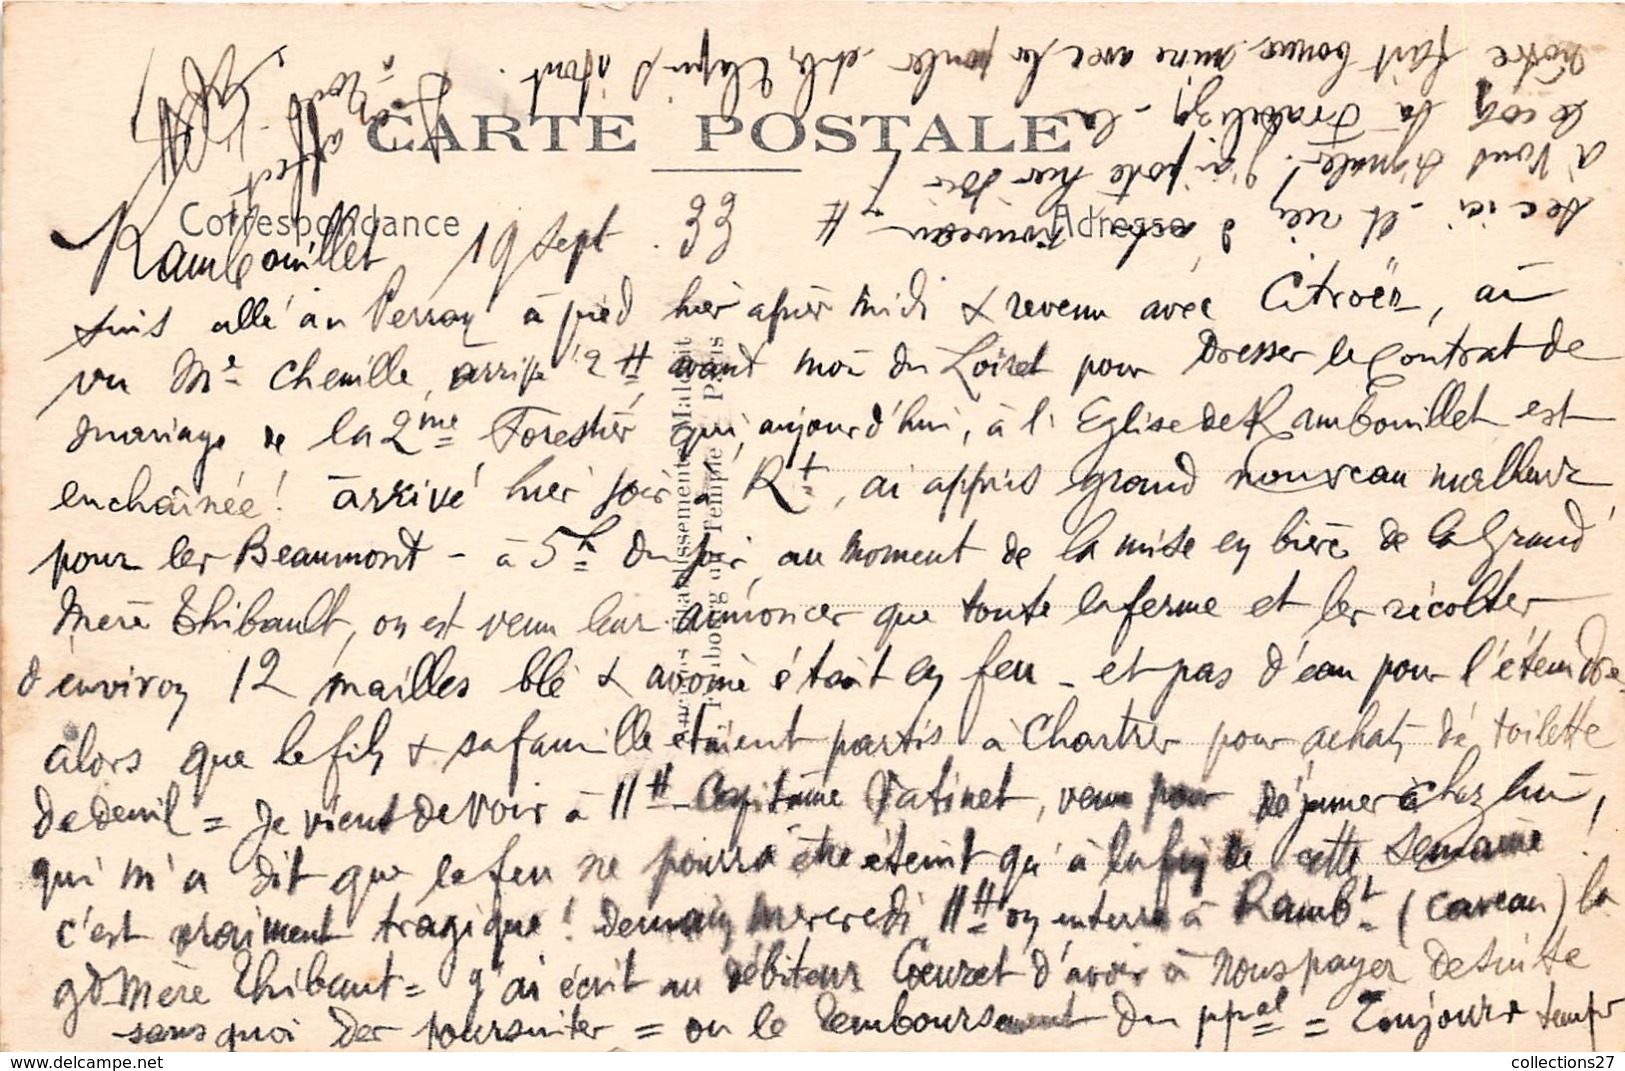 CARTE POSTALE
Correspondance
Adresse
Rambouillet 19 Sept. 33
suis allé au Perray à pied hier après midi & revenu avec Citroën, ai
vu Mr Chenille, arrivé 2 H avant moi du Loiret pour dresser le Contrat de
mariage de la 2me Forestier qui, aujourd'hui, à l'Eglise de Rambouillet est
enchaînée! arrivé hier soir à Rt, ai appris grand nouveau malheur
pour les Beaumont - à 5h du soir, au moment de la mise en bière de la Grand
Mère Thibault, on est venu leur annoncer que toute la ferme et les récoltes
d'environ 12 mailles blé & avoine était en feu - et pas d'eau pour l'éteindre
alors que le fils & sa famille étaient partis à Chartres pour achats de toilette
de deuil = Je viens de voir à 11 H Capitaine Vatinet, venu pour déjeuner chez lui,
qui m'a dit que le feu ne pourra être éteint qu'à la fin de cette semaine!
c'est vraiment tragique! demain mercredi 11 H on enterre à Rambt (caveau) la
gd Mère Thibaut = j'ai écrit au débiteur d'avoir à nous payer de suite
sans quoi des poursuites = ou le remboursement du ppal = Toujours temps
sec ici - et rien de nouveau
à vous signaler! J'ai posté hier soir 7 H
le coq la - la
nôtre fait bonne mine avec les poules - et les lapins
à vous
affect
Imprimeries Établissements Malcuit
Faubourg du Temple Paris
collections27